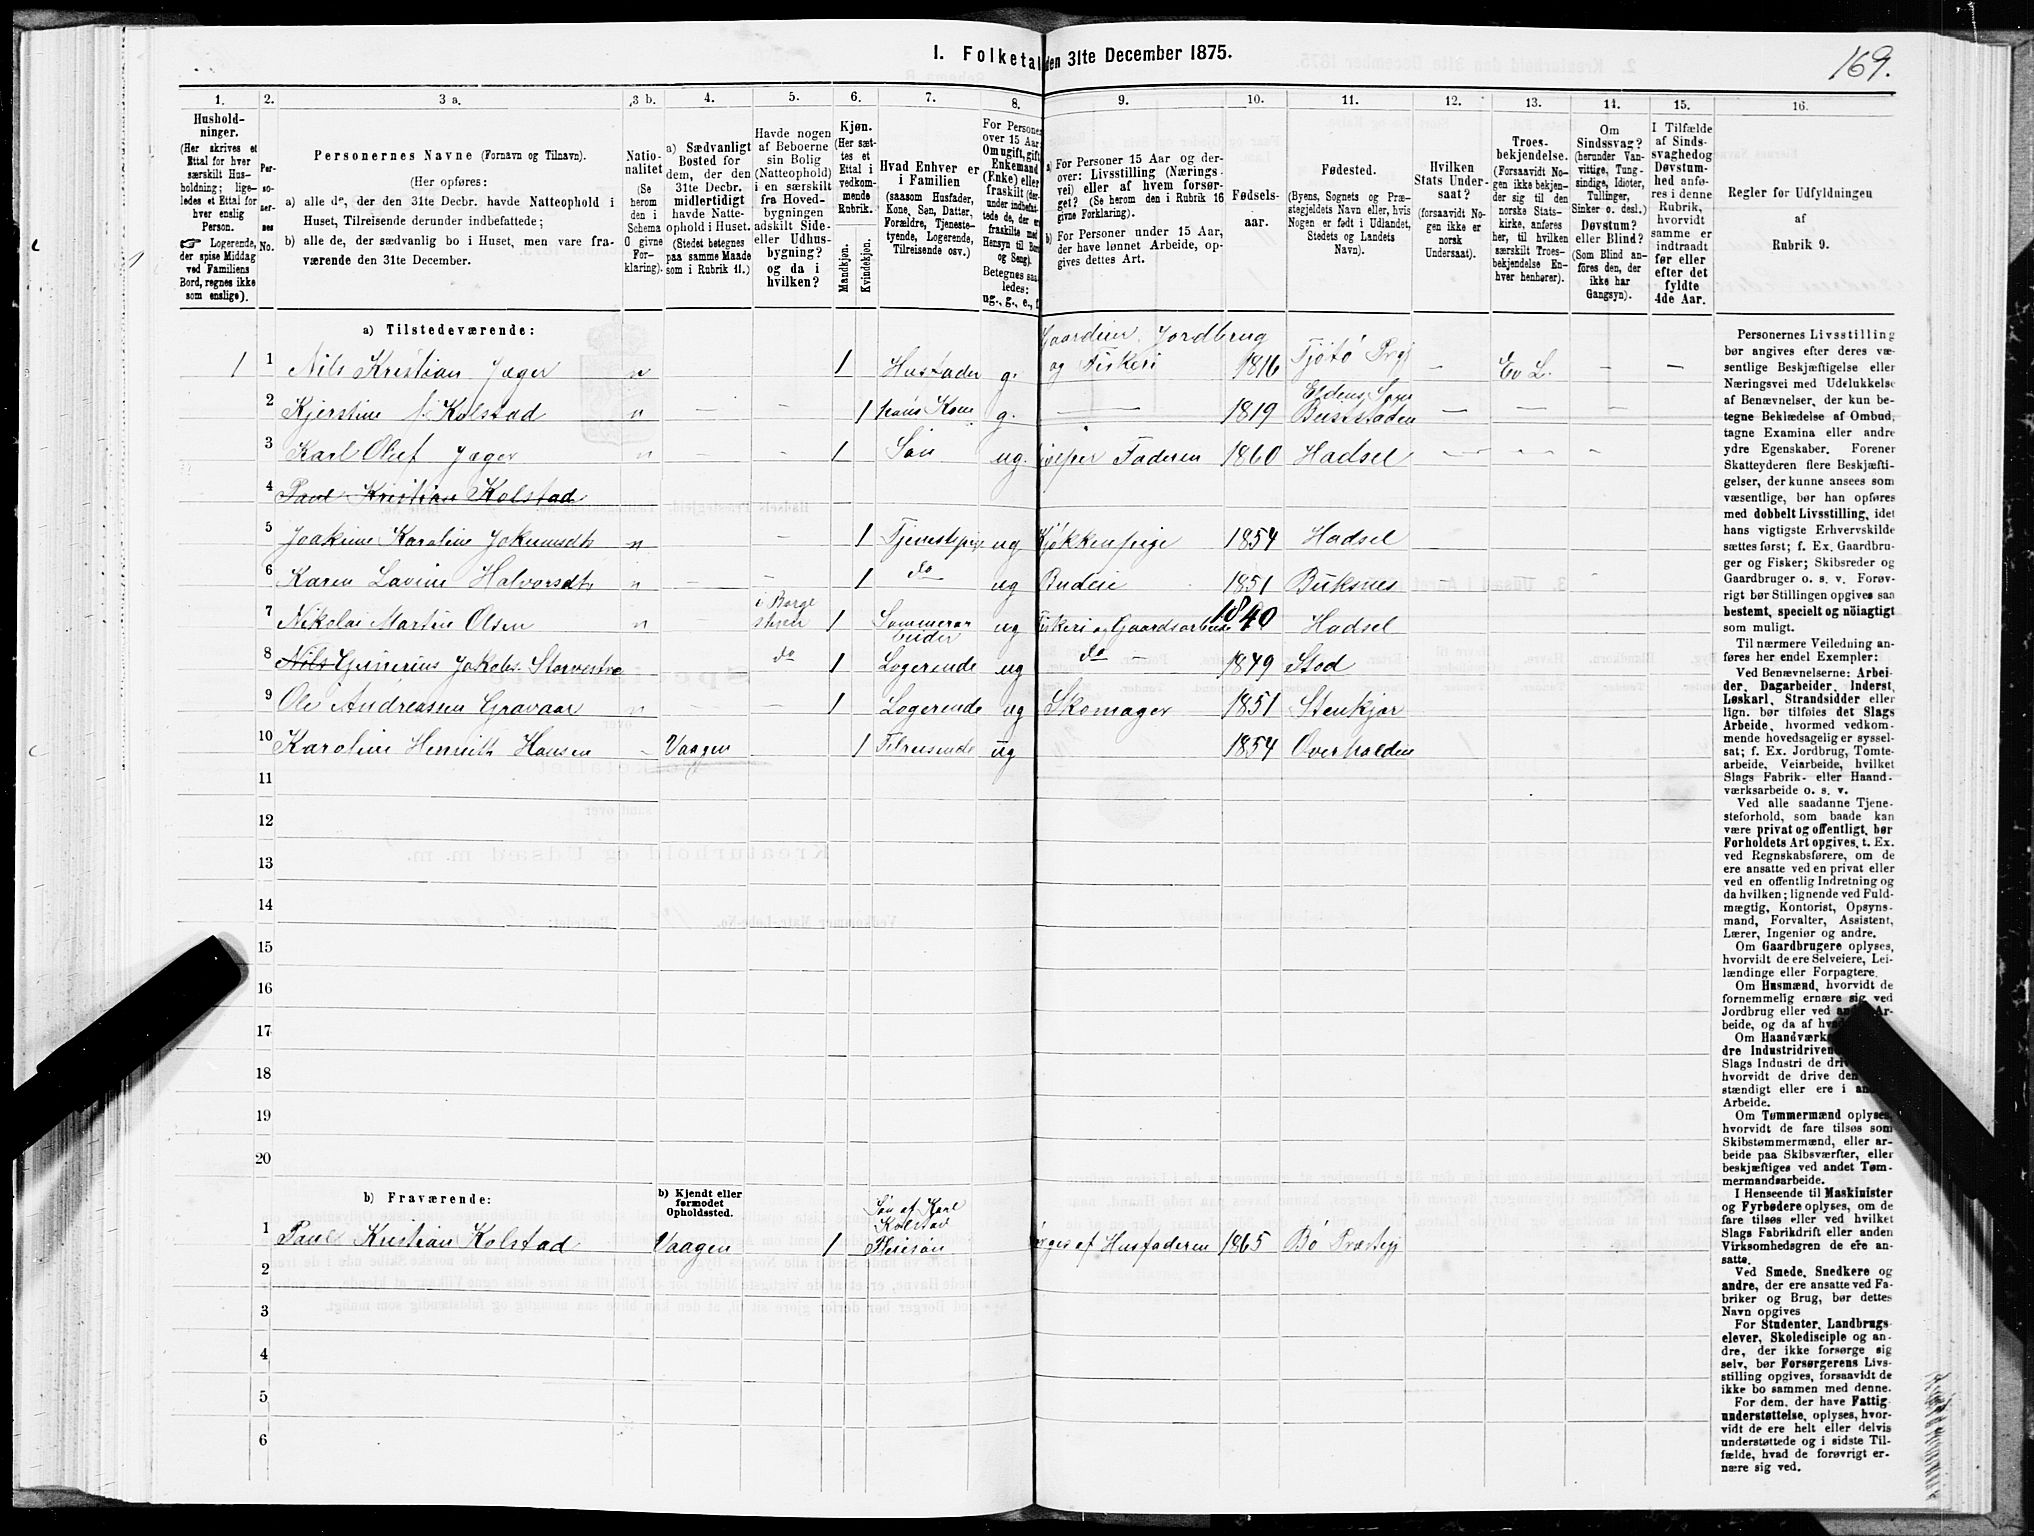 169.
I. Folketal den 31te December 1875.
1. 2. 3 a. 3 b. 4. 5. 6. 7. 8. 9. 10. 11. 12. 13. 14. 15. 16.
Hushold-
ninger.
(Her skrives et
Ettal for hver
særskilt Hus-
holdning; lige-
ledes et Ettal for
hver enslig
Person.
☞ Logerende,
der spise Middag
ved Familiens
Bord, regnes ikke
som enslige).
Per-
so-
ner-
nes
No.
Personernes Navne (Fornavn og Tilnavn).
(Her opføres:
a) alle de, der den 31te Decbr. havde Natteophold i
Huset, Tilreisende derunder indbefattede;
b) alle de, der sædvanlig bo i Huset, men vare fra-
værende den 31te December.
Natio-
nalitet
(Se
herom
den i
Schema
O givne
For-
klaring).
a) Sædvanligt
Bosted for
dem, der den
31te Decbr.
midlertidigt
havde Natte-
ophold i Huset.
(Stedet betegnes
paa samme Maade
som i Rubrik 11.)
Havde nogen
af Beboerne
sin Bolig
(Natteophold)
i en særskilt
fra Hoved-
bygningen
adskilt Side-
eller Udhus-
bygning?
og da i
hvilken?
Kjøn.
(Her sæt-
tes et
Ettal i
vedkom-
mende
Rubrik.
Mandkjøn.
Kvindekjøn.
Hvad Enhver er
i Familien
(saasom Husfader,
Kone, Søn, Datter,
Forældre, Tjeneste-
tyende, Logerende,
Tilreisende osv.)
For Personer
over 15 Aar:
Om ugift, gift,
Enkemand
(Enke) eller
fraskilt (der-
under indbefat-
tede de, der er
fraskilte med
Hensyn til Bord
og Seng).
Betegnes saa-
ledes:
ug., g., e., f.
a) For Personer 15 Aar og der-
over: Livsstilling (Nærings-
vei) eller af hvem forsør-
get? (Se herom den i Rubrik 16
givne Forklaring).
b) For Personer under 15 Aar,
der have lønnet Arbeide, op-
gives dettes Art.
Fødsels-
aar.
Fødested.
(Byens, Sognets og Præ-
stegjeldets Navn eller, hvis
Nogen er født i Udlandet,
Stedets og Landets
Navn).
Hvilken
Stats Under-
saat?
(forsaavidt No-
gen ikke er
norsk
Undersaat).
Troes-
bekjendelse.
(Forsaavidt No-
gen ikke bekjen-
der sig til den
norske Stats-
kirke, anføres
her, til hvilken
særskilt Troes-
bekjendelse En-
hver henhører).
Om
Sindssvag?
(herunder Van-
vittige, Tung-
sindige, Idioter,
Tullinger,
Sinker o. desl.)
Døvstum?
eller Blind?
(Som Blind an-
føres den, der
ikke har
Gangsyn).
I Tilfælde
af Sinds-
svaghed og
Døvstum-
hed anfø-
res i denne
Rubrik,
hvorvidt
samme er
indtraadt
før eller
efter det
fyldte
4de Aar.
Regler for Udfyldningen
af
Rubrik 9.
a) Tilstedeværende:
Gaardeier Jordbrug
1 1 Nils Kristian Jæger n 1 Husfader g. og Fiskeri 1816 Tjøtø Prgj — Ev L. — —
2 Kjerstine Kolstad n — — 1 hans Kone g. — 1819 Eldens Sogn Beitstaden — —
3 Karl Oluf Jæger n — — 1 Søn ug. hjelper Faderen 1860 Hadsel
4 Paul Kristian Kolstad
5 Joakine Karoline Jokumsdtr n — 1 Tjenestpige ug Kjøkkenpige 1854 Hadsel
6 Karen Lavine Halvorsdtr n — — 1 do ug Budeie 1851 Buksnes
7 Nikolai Martin Olsen n — i Borgestuen 1 ug Fiskeri og Gaardsarbeide 1840 Hadsel
8 Nils Gunerius Jakobs. do 1 Logerende ug do 1849 Stod
9 Ole Andreassen Gravaar n — — 1 Logerende ug Skomager 1851 Stenkjær
10 Karoline Henrith Hansen — Vaagen 1 Tilreisende ug 1854 Overhalden
11
12
13
14
15
16
17
18
19
20
b) Fraværende:
b) Kjendt eller
formodet
Opholdssted.
Søn af Karl
Kolstad
1 Paul Kristian Kolstad Vaagen 1 Pleiesøn sørges af Husfaderen 1865 Bø Præstegj
2
3
4
5
6
Personernes Livsstilling
bør angives efter deres væ-
sentlige Beskjæftigelse eller
Næringsvei med Udelukkelse
af Benævnelser, der kun be-
tegne Beklædelse af Ombud,
tagne Examina eller andre
ydre Egenskaber. Forener
Skatteyderen flere Beskjæfti-
gelser, der kunne ansees som
væsentlige, bør han opføres
med dobbelt Livsstilling, idet
hans vigtigste Erhvervskilde
sættes først; f. Ex. Gaardbru-
ger og Fisker; Skibsreder og
Gaardbruger o. s. v. Forøv-
rigt bør Stillingen opgives saa
bestemt, specielt og nöiagtigt
som muligt.
Til nærmere Veiledning an-
føres her endel Exempler:
Ved Benævnelserne: Arbei-
der, Dagarbeider, Inderst,
Løskarl, Strandsidder eller
lign. bør tilføies det Slags
Arbeide, hvormed vedkom-
mende hovedsagelig er syssel-
sat; f. Ex. Jordbrug, Tomte-
arbeide, Veiarbeide, hvilket
Slags Fabrik- eller Haand-
værksarbeide o. s. v.
Ved alle saadanne Tjene-
steforhold, som baade kan
være privat og offentligt, bør
Forholdets Art opgives, t. Ex.
ved Regnskabsførere, om de
ere ansatte ved en privat eller
ved en offentlig Indretning og
da hvilken; lignende ved Fuld-
mægtig, Kontorist, Opsyns-
mand, Forvalter, Assistent,
Lærer, Ingeniør og andre.
Om Gaardbrugere oplyses,
hvorvidt de ere Selveiere, Lei-
lændinge eller Forpagtere.
Om Husmænd, hvorvidt de
fornemmelig ernære sig ved
Jordbrug eller ved Ar-
beide, og da af
Om Haandværk
dre Industridriven
Slags Industri de dri
hvorvidt de drive den
stændigt eller ere i
Arbeide.
Om Tømmermænd oplyses,
hvorvidt de fare tilsøs som
Skibstømmermænd, eller ar-
beide paa Skibsværfter, eller
beskjæftiges ved andet Tøm-
mermandsarbeide.
I Henseende til Maskinister
og Fyrbødere oplyses, om de
fare tilsøs eller ved hvilket
Slags Fabrikdrift eller anden
Virksomhedsgren de ere an-
satte.
Ved Smede, Snedkere og
andre, der ere ansatte ved Fa-
briker og Brug, bør dettes
Navn opgives
For Studenter, Landbrugs-
elever, Skoledisciple og an-
dre, der ikke forsørge sig
selv, bør Forsørgerens Livs-
stilling opgives, forsaavidt de
ikke bo sammen med denne.
For dem, der have Fattig-
understøttelse, oplyses, hvor-
vidt de ere helt eller delvis
understøttede og i sidste Til-
fælde, hvad de forøvrigt er-
nære sig ved.